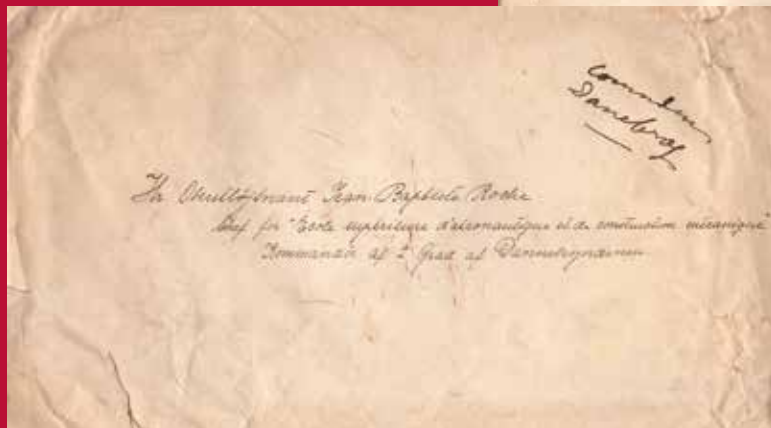 Hr Oberstløjtnant Jean Baptiste Roche
Chef for "Ecole supérieure d'aéronautique et de construction mécanique"
Kommandør af 2 Grad af Dannebrogordenen
Danebrog